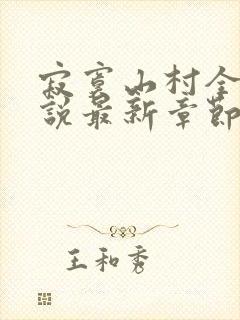 寂寞山村全
說最新章節
王和秀